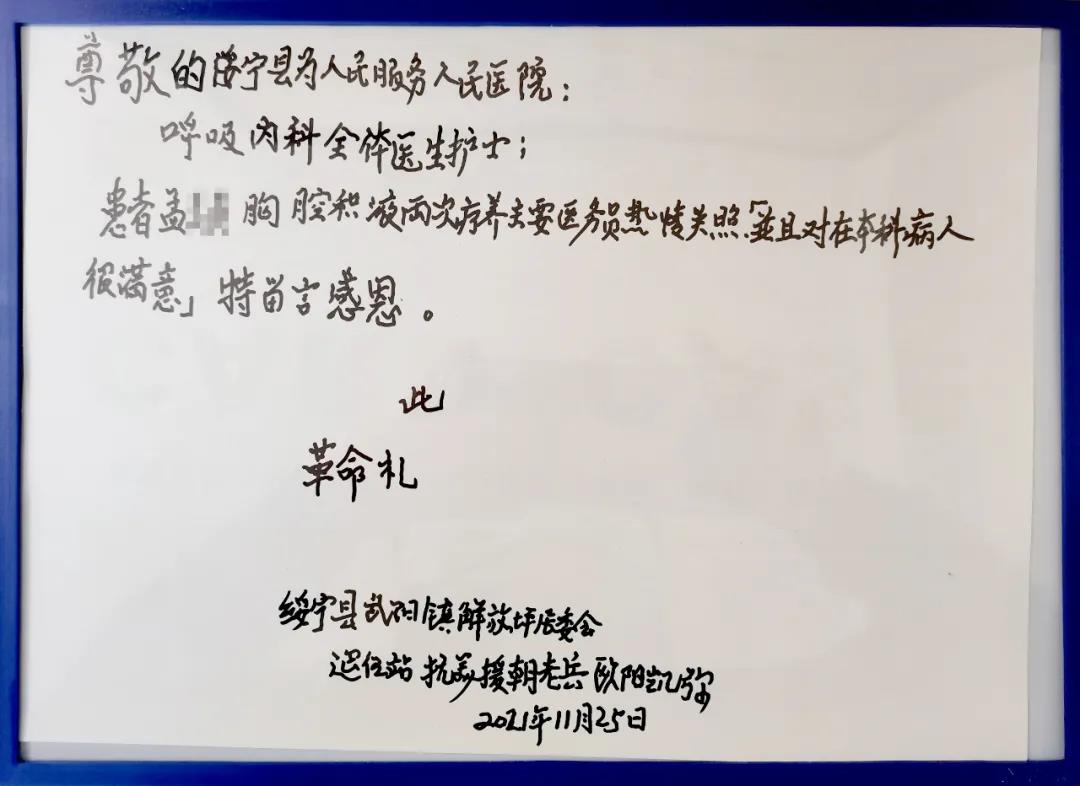 尊敬的绥宁县为人民服务人民医院：
呼吸内科全体医生护士；
患者孟 胸腔积液两次疗养主要医务员热情关照「並且对在本科病人
很满意」特留言感恩。
此
革命礼
绥宁县武阳镇解放坪居委会
退伍站 抗美援朝老兵 欧阳凯弥
2021年11月25日